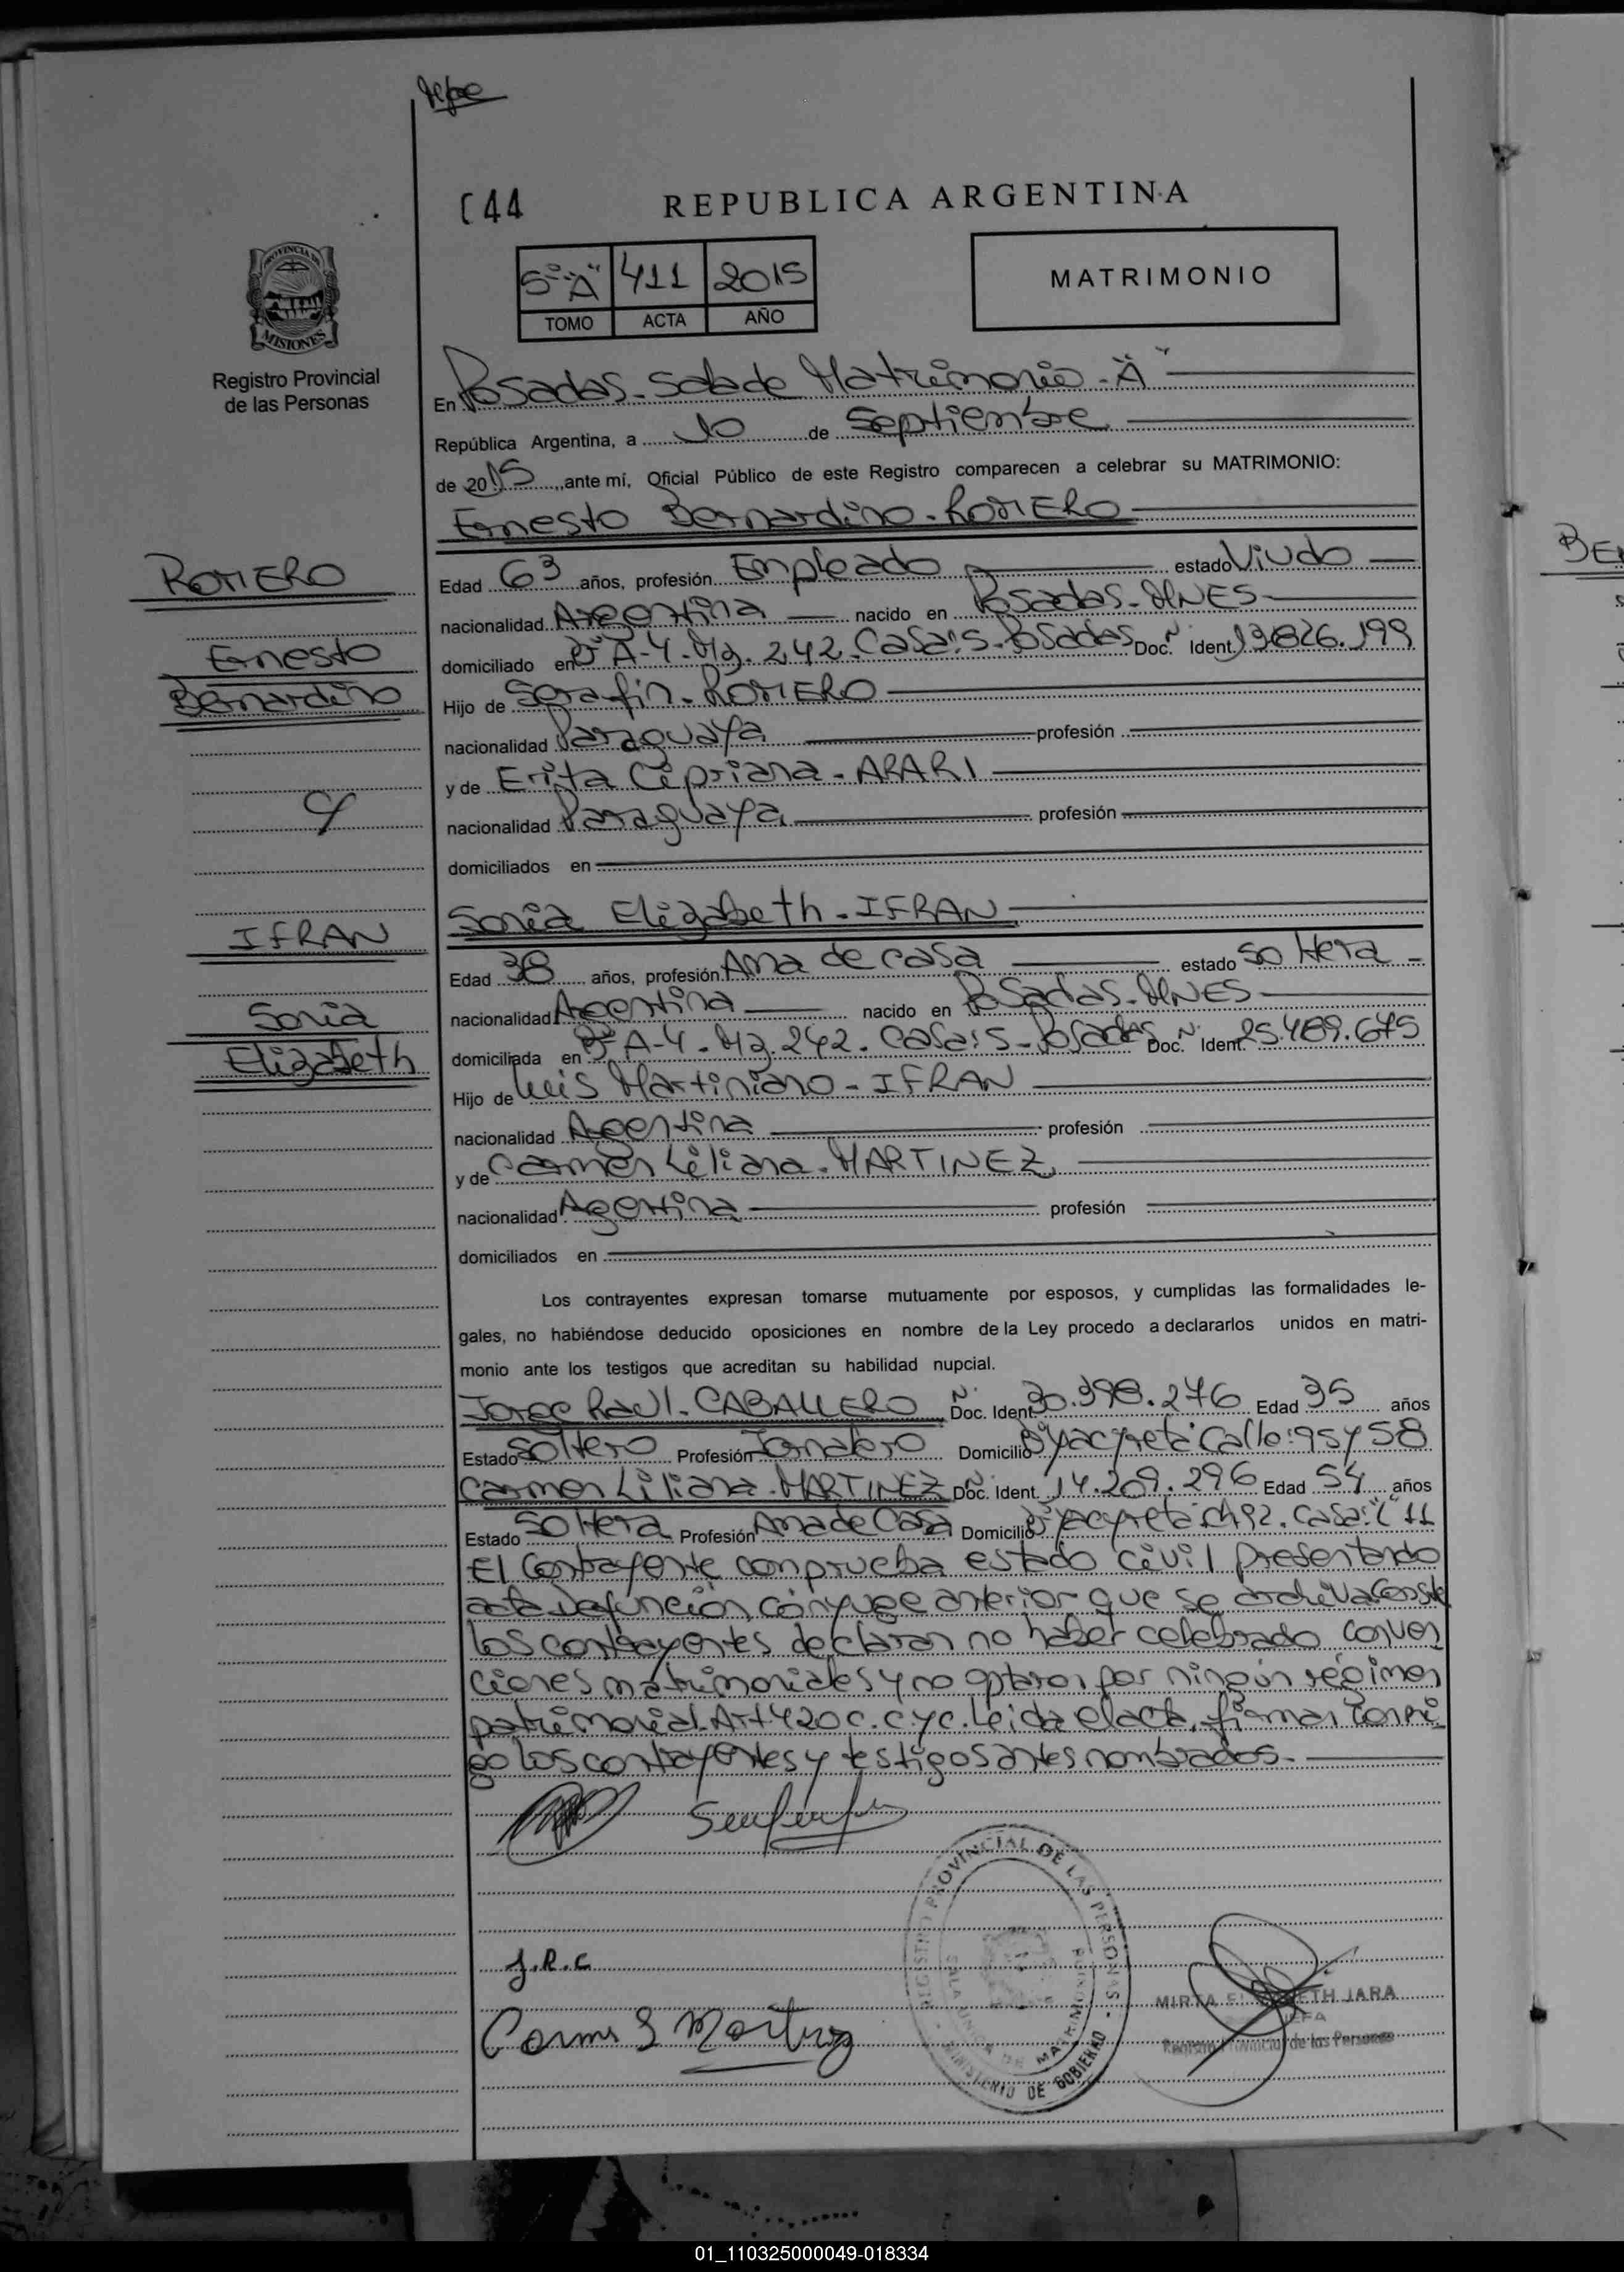 C44
REPUBLICA ARGENTINA
PROVINCIA DE
MISIONES
Registro Provincial
de las Personas
5º "A" 411 2015
TOMO ACTA AÑO
MATRIMONIO
En Posadas - Sala de Matrimonio - "A"
República Argentina, a 10 de Septiembre
de 2015, ante mí, Oficial Público de este Registro comparecen a celebrar su MATRIMONIO:
Ernesto Bernardino - ROMERO
ROMERO
Ernesto
Bernardino
Edad 63 años, profesión Empleado estado Viudo
nacionalidad Argentina nacido en Posadas - MNES
domiciliado en Bº A-4 - Mz. 242. Casa: 5 - Posadas Doc. Nº Ident. 13.826.199
Hijo de Serafin - ROMERO
nacionalidad Paraguaya profesión
y de Erita Cipriana - ARARI
nacionalidad Paraguaya profesión
domiciliados en
Sonia Elizabeth - IFRAN
IFRAN
Sonia
Elizabeth
Edad 38 años, profesión Ama de casa estado soltera
nacionalidad Argentina nacido en Posadas - MNES
domiciliada en Bº A-4 - Mz. 242. Casa: 5 - Posadas Doc. Nº Ident. 25.489.675
Hijo de Luis Martiniano - IFRAN
nacionalidad Argentina profesión
y de Carmen Liliana - MARTINEZ
nacionalidad Agentina profesión
domiciliados en
Los contrayentes expresan tomarse mutuamente por esposos, y cumplidas las formalidades le-
gales, no habiéndose deducido oposiciones en nombre de la Ley procedo a declararlos unidos en matri-
monio ante los testigos que acreditan su habilidad nupcial.
Jorge Raul - CABALLERO Nº Doc. Ident. 30.398.276 Edad 35 años
Estado Soltero Profesión Jornalero Domicilio Bº Yacyreta Calle: 95 y 58
Carmen Liliana - MARTINEZ Nº Doc. Ident. 14.209.296 Edad 54 años
Estado Soltera Profesión Ama de Casa Domicilio Bº Yacyreta Ch 92. Casa: 11
El Contrayente comprueba estado civil presentando
acta defunción cónyuge anterior que se archiva Conste
los contrayentes declaran no haber celebrado conven
ciones matrimoniales y no optaron por ningún régimen
patrimonial - Art 420 C.C y C. Leida el acta, firman Conmi
go los contrayentes y testigos antes nombrados.-
J.R.C
Carmen L Martinez
REGISTRO PROVINCIAL DE LAS PERSONAS - MINISTERIO DE GOBIERNO
DE MATRIMONIO
MIRTA ELIZABETH JARA
JEFA
Registro Provincial de las Personas
01_110325000049-018334